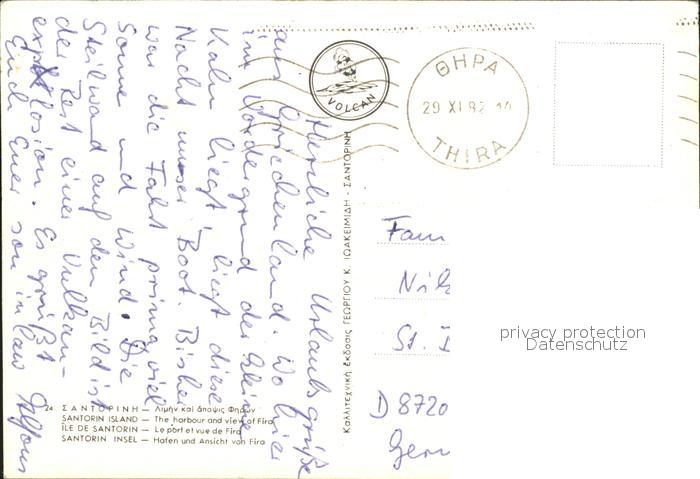 Herzliche Urlaubsgrüße
aus Griechenland. Wo hier
im Vordergrund der kleine
Kahn liegt, liegt diese
Nacht unser Boot. Bisher
war die Fahrt prima, viel
Sonne und Wind. Die
Steilwand auf dem Bild ist
der Rest einer Vulkan-
explosion. Es grüßt
Euch Euer son in law Alfons
VOLCAN
ΘΗΡΑ
29 XI 82 14
THIRA
Καλλιτεχνική Ἐκδοσις ΓΕΩΡΓΙΟΥ Κ. ΙΩΑΚΕΙΜΙΔΗ - ΣΑΝΤΟΡΙΝΗ
Fam
St.
D 8720
Ger
privacy protection
Datenschutz
24 ΣΑΝΤΟΡΙΝΗ — Λιμήν καί ἄποψις Φηρῶν
SANTORIN ISLAND — The harbour and view of Fira
ÎLE DE SANTORIN — Le port et vue de Fira
SANTORIN INSEL — Hafen und Ansicht von Fira